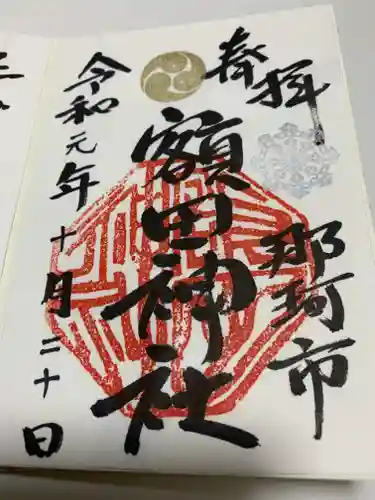 奉拝
那珂市
額田神社
令和元年十月二十日